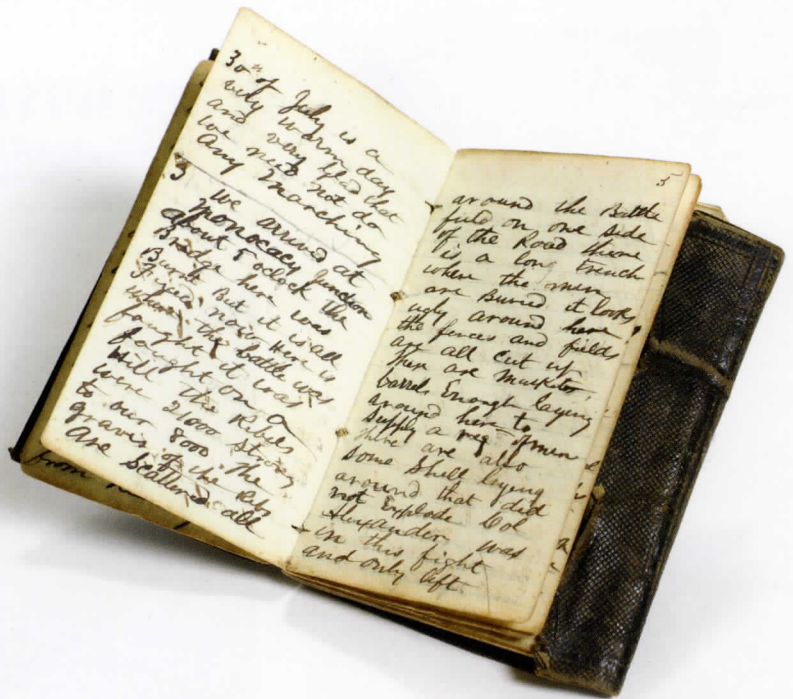 30th of July is a
very warm day
and very glad that
we need not do
any marching
3 we arrived at
monocacy Junction
about 5 oclock the
Bridge here was
Burnt But it is all
now Here is
where the battle was
fought it was
fought on a
Hill the Rebels
were 21000 strong
to our 8000 the
graves of the Reb
are scattered all
from
5
around the Battle
field on one side
of the Road there
is a long trench
where the men
are Buried it looks
ugly around here
the fences and field
are all cut up
there are Muskets
barrels Enough laying
around here to
supply a reg of men
there are also
some shell laying
around that did
not Explode Col
Alexander was
in this fight
and only left